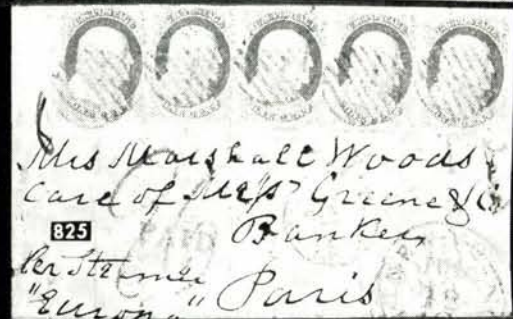 Mrs Marshall Woods
Care of Messrs Greene & Co
Bankers
825
Per Steamer
"Europa" Paris